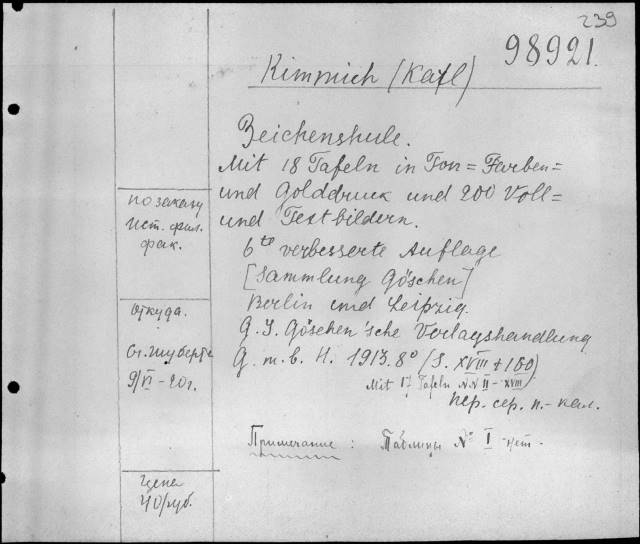 239
98921.
Kimmich (Karl)
Zeichenshule.
Mit 18 Tafeln in Ton= Farben=
und Golddruck und 200 Voll=
und Textbildern.
6te verbesserte Auflage
[Sammlung Göschen]
Berlin und Leipzig.
G. J. Göschen'sche Verlagshandlung
G. m. b. H. 1913. 8° (S. XVIII + 160)
Mit 17 Tafeln N.N II - XVIII
пер. сер. п. - кал.
Примечание: Таблицы № I нет.
по заказу
ист. фил.
фак.
Откуда.
От Шуберта
9/VI - 20 г.
Цена
40/руб.